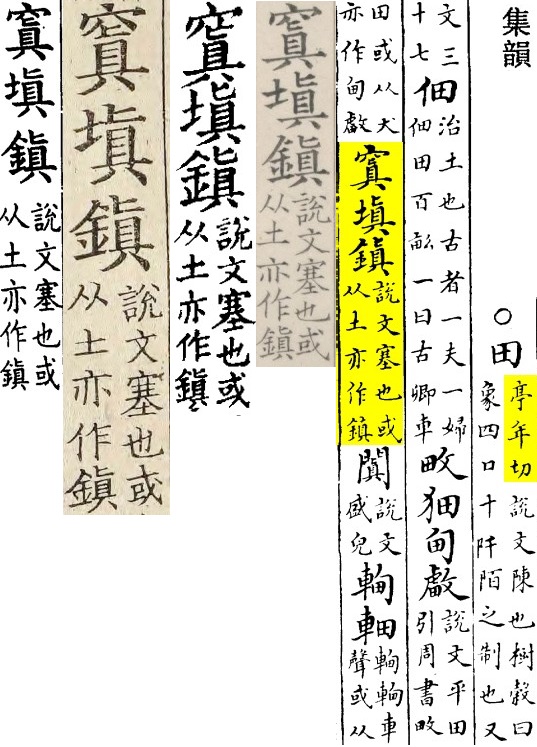 集韻
○田
亭年切說文陳也樹穀曰
象四口十阡陌之制也又
文三
十七
佃
治土也古者一夫一婦
佃田百畝一曰古卿車
畋甸
說文平田
引周書畋
田或从犬
亦作甸
窴塡鎭
說文塞也或
从土亦作鎭
闐
說文
盛皃
車
聲或从
窴塡鎭
說文塞也或
从土亦作鎭
窴塡鎭
說文塞也或
从土亦作鎭
窴塡鎭
說文塞也或
从土亦作鎭
窴塡鎭
說文塞也或
从土亦作鎭